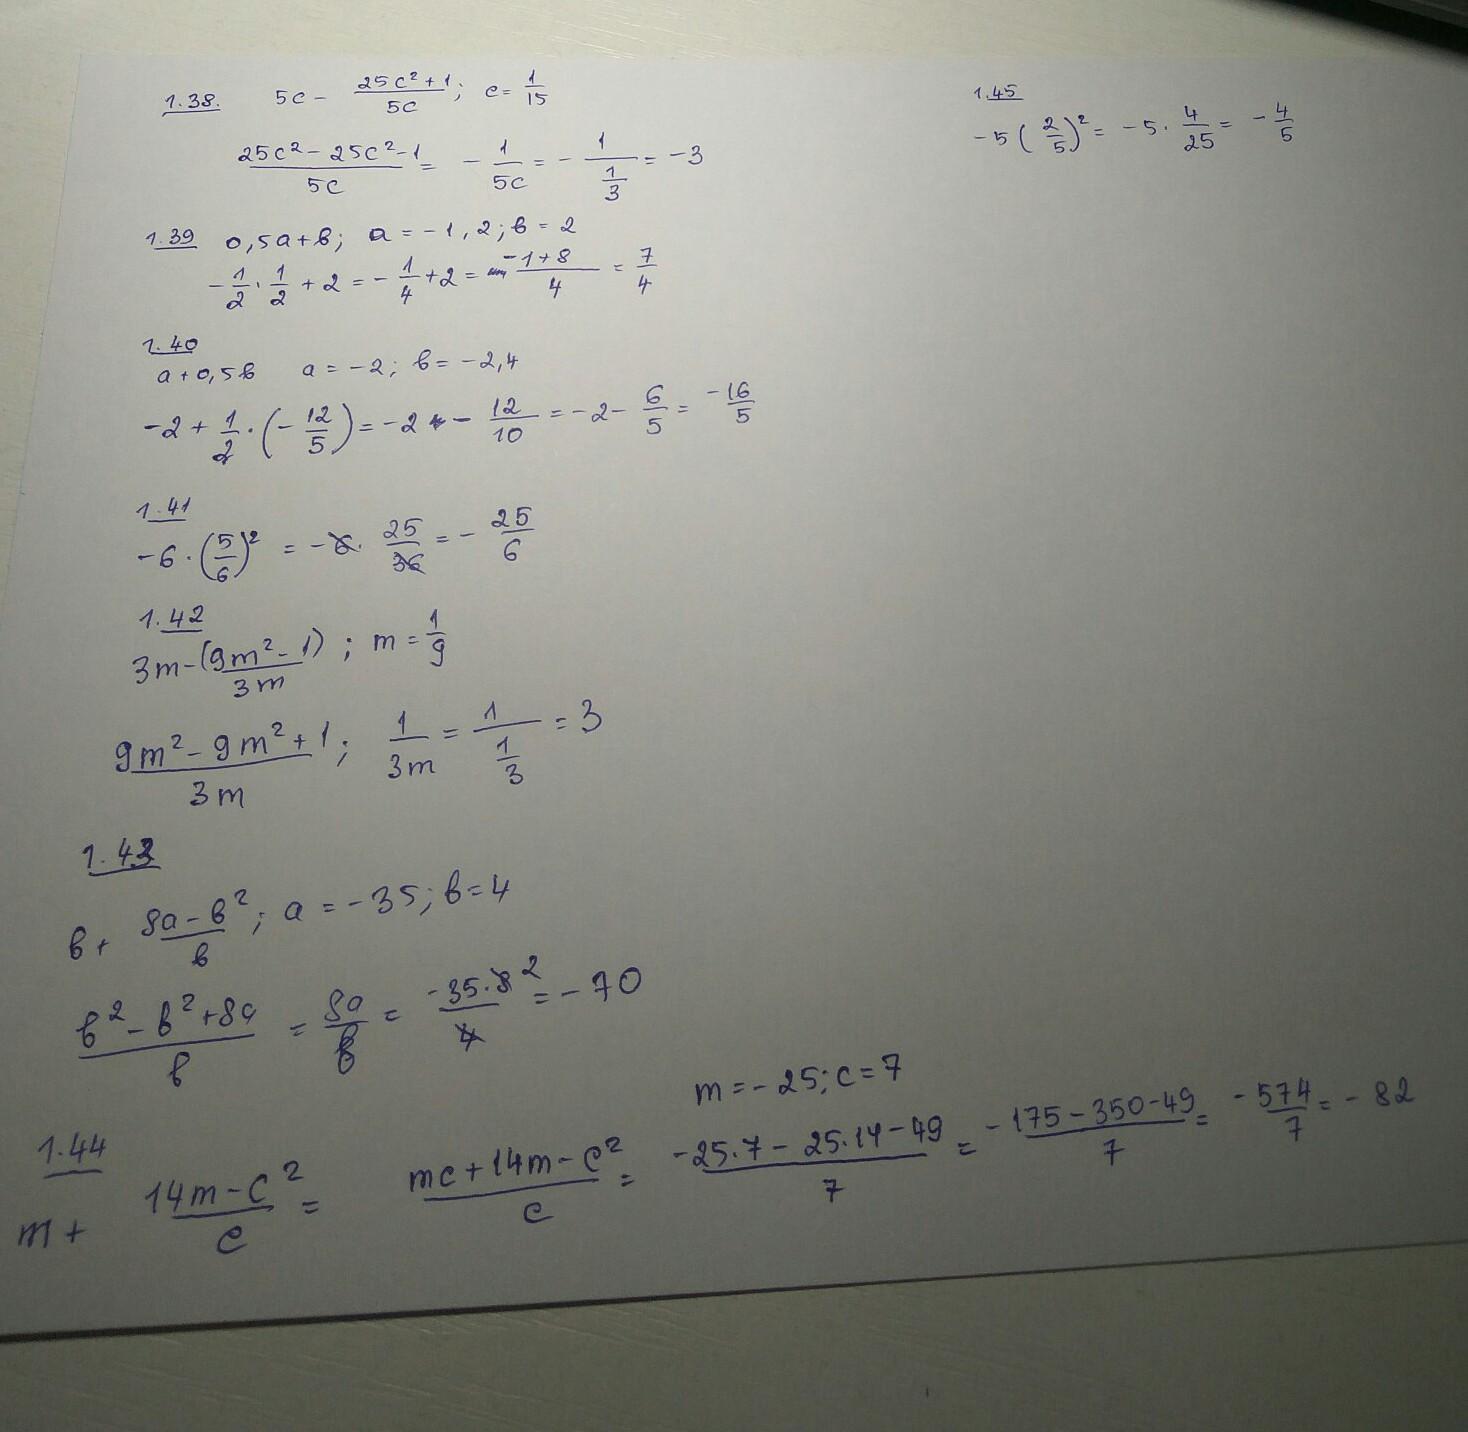 1.38. 5c - (25c² + 1)/(5c); c = 1/15
(25c² - 25c² - 1)/(5c) = -1/(5c) = -1/(1/3) = -3
1.39 0,5a+b; a = -1,2; b = 2
-1/2 · 1/2 + 2 = -1/4 + 2 = (-1+8)/4 = 7/4
1.40
a+0,5b a = -2; b = -2,4
-2 + 1/2 · (-12/5) = -2 - 12/10 = -2 - 6/5 = -16/5
1.41
-6 · (5/6)² = -6 · 25/36 = -25/6
1.42
3m - (9m² - 1)/(3m); m = 1/9
(9m² - 9m² + 1)/(3m); 1/(3m) = 1/(1/3) = 3
1.43
b + (8a - b²)/b; a = -35; b = 4
(b² - b² + 8a)/b = 8a/b = (-35·8 2)/4 = -70
1.44 m = -25; c = 7
m + (14m - c²)/c = (mc + 14m - c²)/c = (-25·7 - 25·14 - 49)/7 = (-175 - 350 - 49)/7 = -574/7 = -82
1.45
-5 (2/5)² = -5 · 4/25 = -4/5